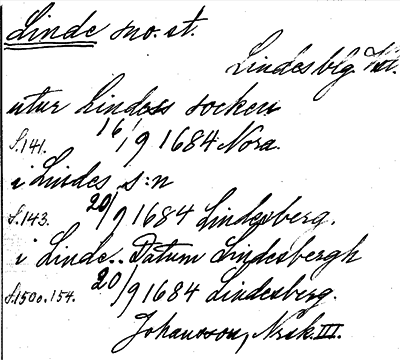 Linde sno. st.
Lindesblg
utur Lindess socken
S.141. 16/9 1684 Nora.
i Lindes s:n
S.143. 20/9 1684 Lindesberg.
i Linde.. Datum Lindesbergh
S.150 o. 154. 20/9 1684 Lindesberg.
Johansson, Nrsk. III.